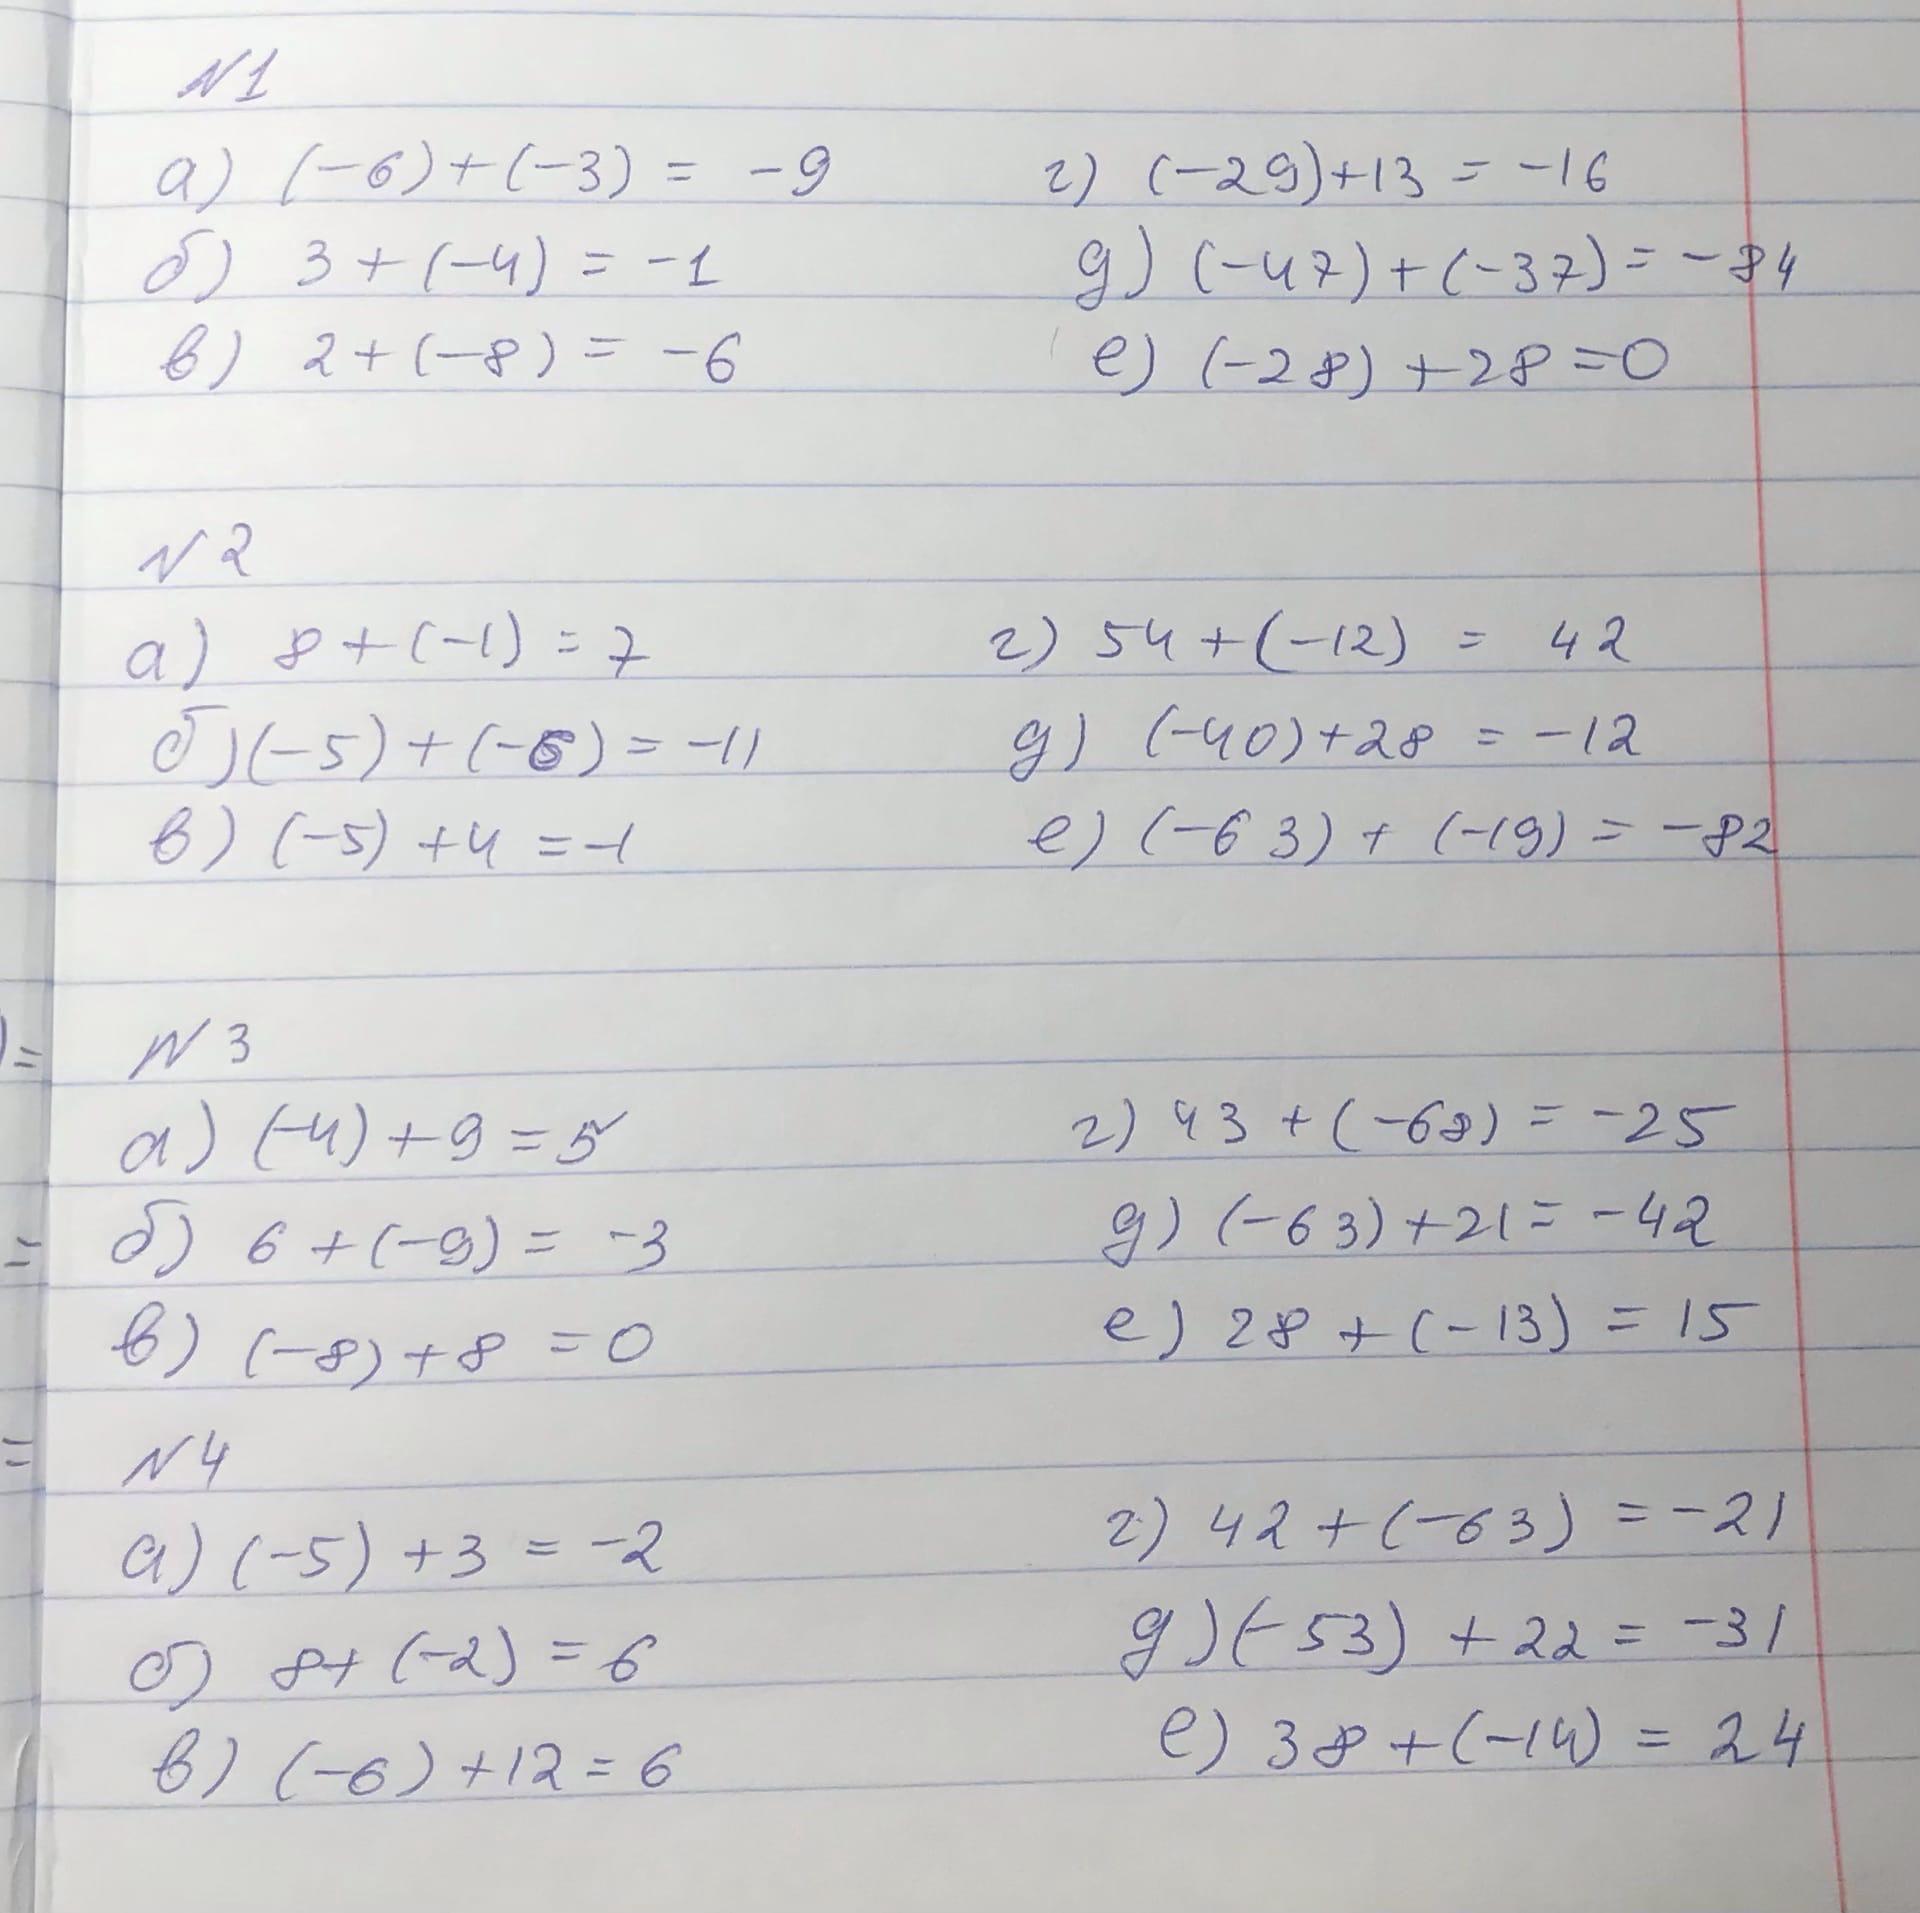 N1
а) (-6)+(-3) = -9
г) (-29)+13 = -16
б) 3+(-4) = -1
д) (-47)+(-37) = -84
в) 2+(-8) = -6
е) (-28)+28=0
N2
а) 8+(-1) = 7
г) 54+(-12) = 42
б) (-5)+(-6) = -11
д) (-40)+28 = -12
в) (-5)+4 = -1
е) (-63)+(-19) = -82
N3
а) (-4)+9=5
г) 43+(-68) = -25
б) 6+(-9) = -3
д) (-63)+21 = -42
в) (-8)+8 = 0
е) 28+(-13) = 15
N4
а) (-5)+3 = -2
г) 42+(-63) = -21
б) 8+(-2) = 6
д) (-53)+22 = -31
в) (-6)+12=6
е) 38+(-14) = 24
)=
=
=